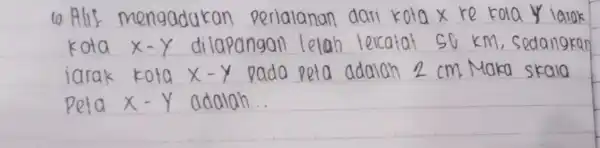 6 Alif mengadakan perjalanan dari kota x ke kota y jarak
kota x-y dilapangan telah tercatat 50 km, sedangkan
jarak kota x-y pada peta adalah 2 cm. Maka skala
Peta x-y adalah..